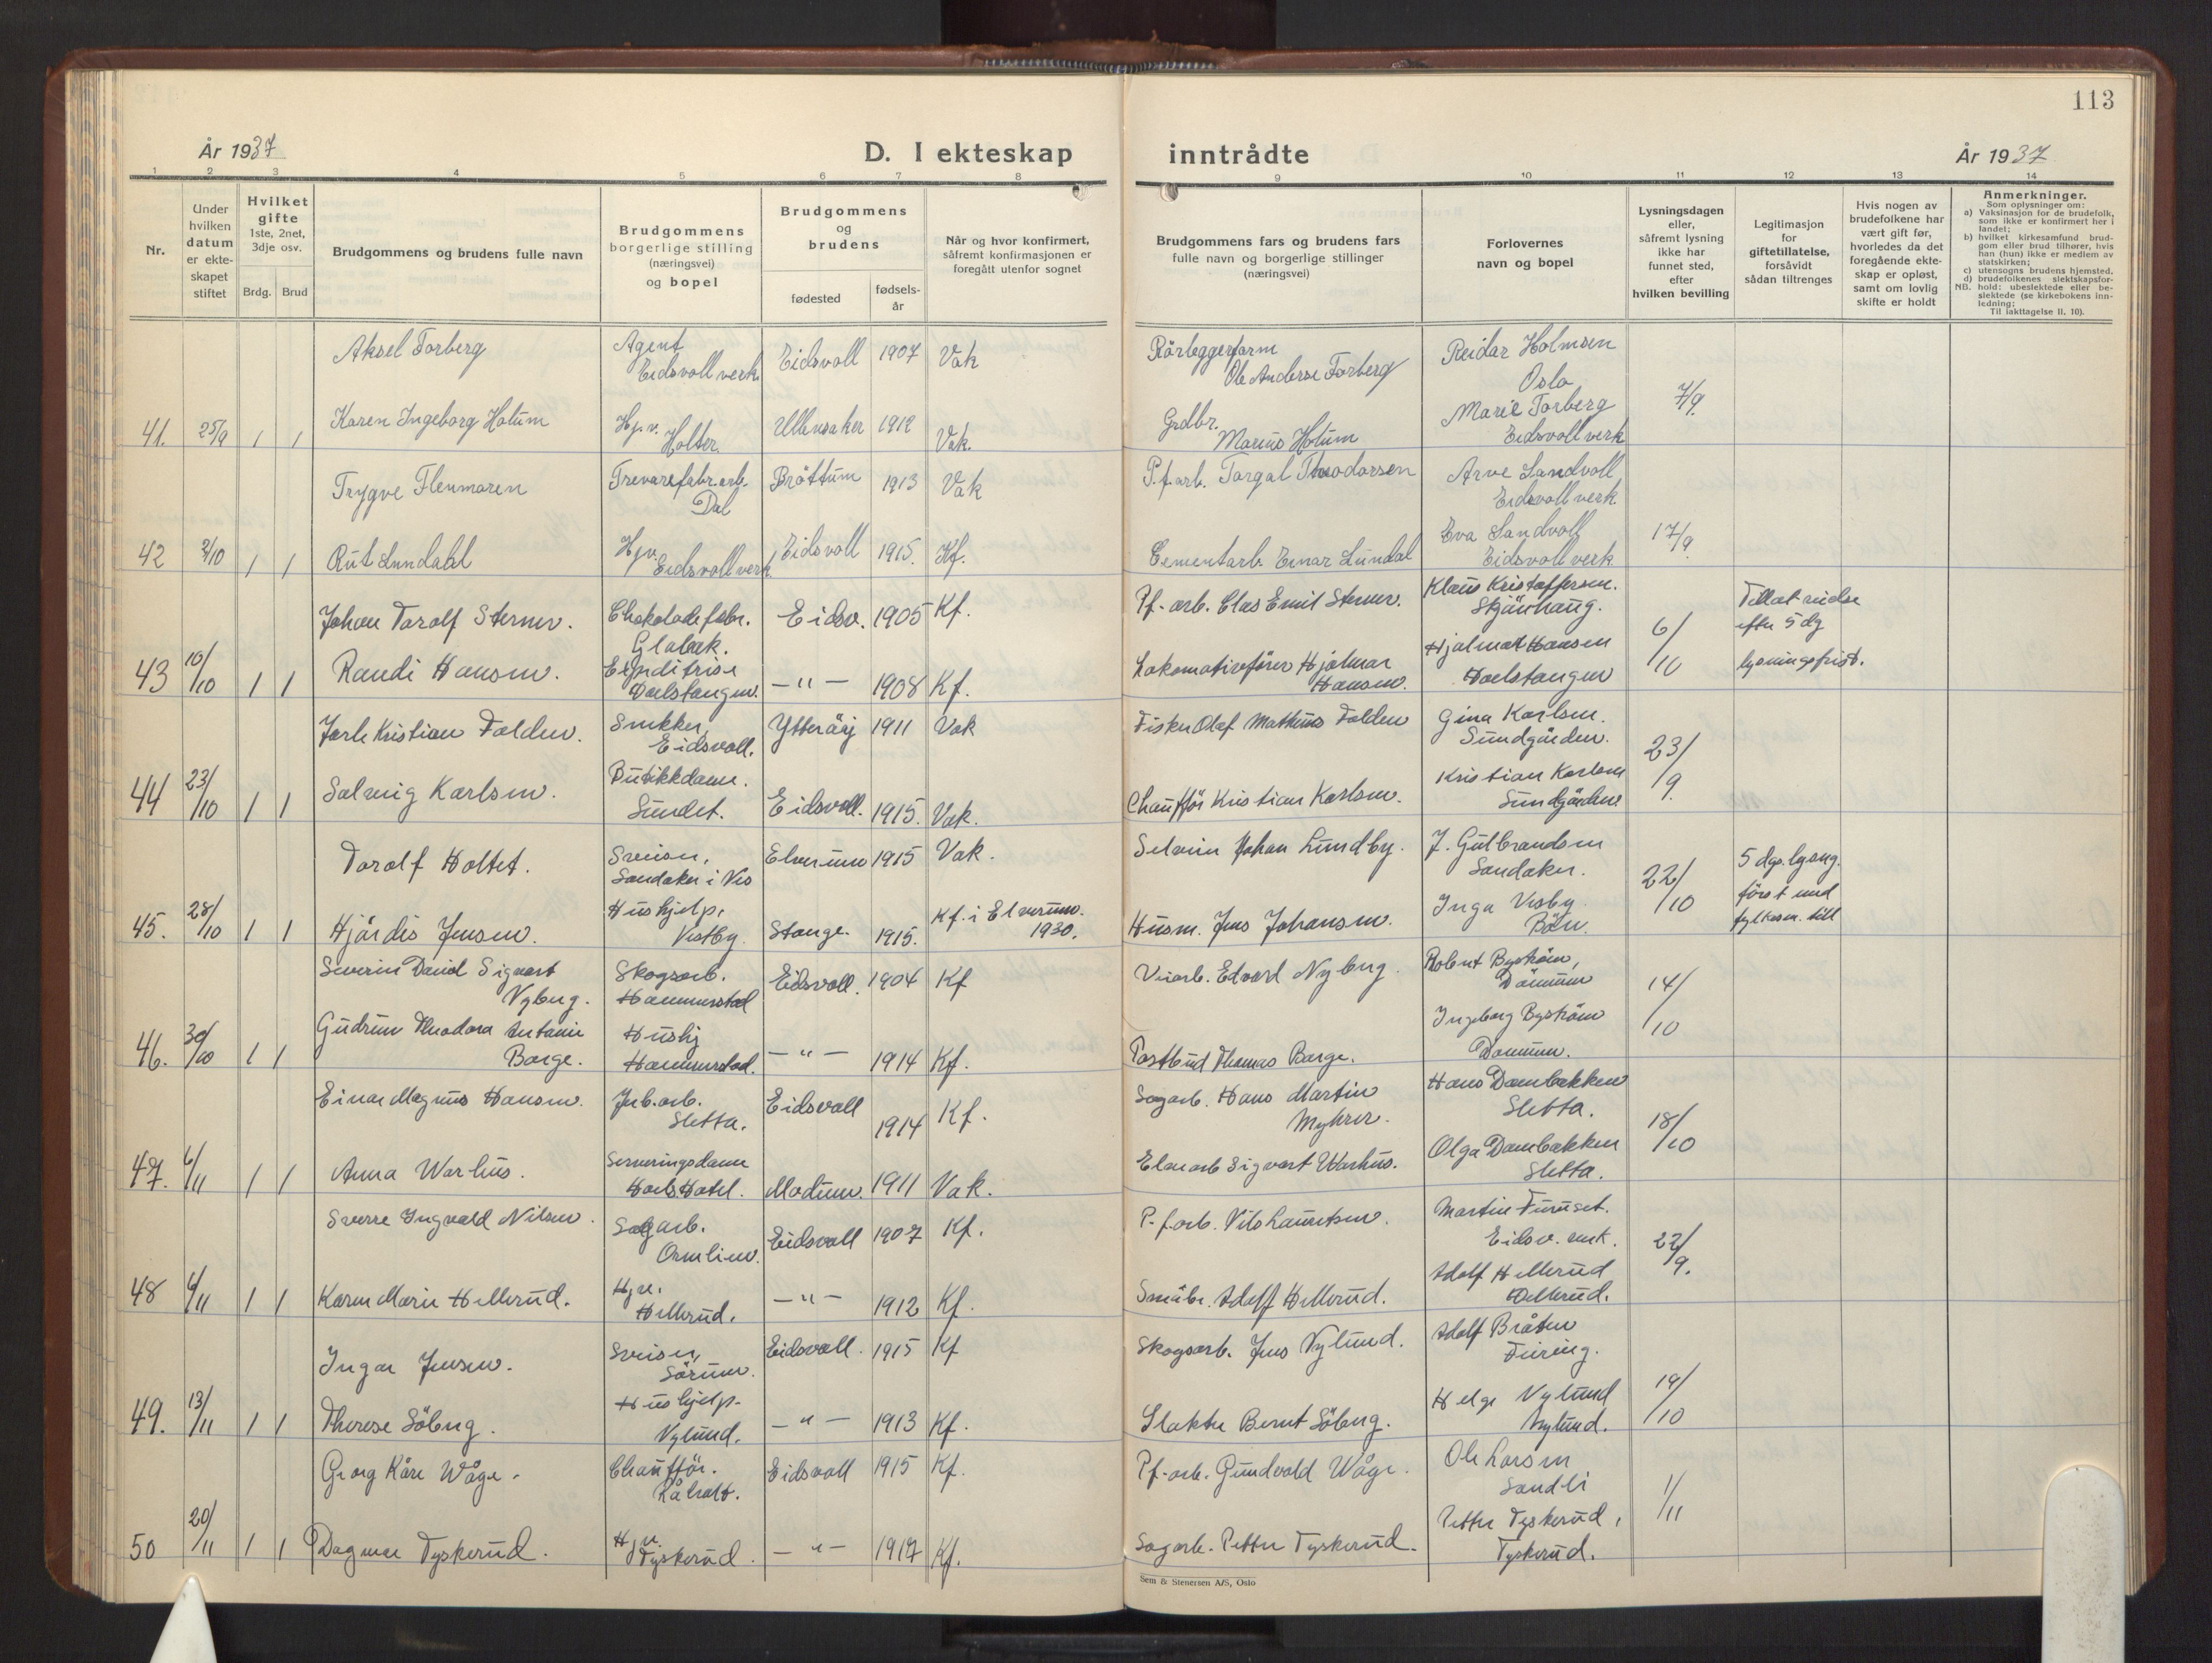 113
År 1937
D. I ekteskap inntrådte
År 1937
1 2 3 4 5 6 7 8 9 10 11 12 13 14
Nr.
Under hvilken datum er ekteskapet stiftet
Hvilket gifte 1ste, 2net, 3dje osv.
Brdg. Brud
Brudgommens og brudens fulle navn
Brudgommens borgerlige stilling (næringsvei) og bopel
Brudgommens og brudens
fødested
fødselsår
Når og hvor konfirmert, såfremt konfirmasjonen er foregått utenfor sognet
Brudgommens fars og brudens fars fulle navn og borgerlige stillinger (næringsvei)
Forlovernes navn og bopel
Lysningsdagen eller, såfremt lysning ikke har funnet sted, efter hvilken bevilling
Legitimasjon for giftetillatelse, forsåvidt sådan tiltrenges
Hvis nogen av brudefolkene har vært gift før, hvorledes da det foregående ekteskap er opløst, samt om lovlig skifte er holdt
Anmerkninger.
Som oplysninger om:
a) Vaksinasjon for de brudefolk, som ikke er konfirmert her i landet;
b) hvilket kirkesamfund brudgom eller brud tilhører, hvis han (hun) ikke er medlem av statskirken;
c) utensogns brudens hjemsted.
d) brudefolkenes slektskapsforhold: ubeslektede eller beslektede (se kirkebokens innledning;
NB.
Til iakttagelse II. 10).
Aksel Torberg Agent Eidsvoll verk Eidsvoll 1907 Vak Rørleggerform Ole Anderse Torberg Reidar Holmsen Oslo
41. 25/9 1 1 Karen Ingeborg Holum Hj.v. Holter Ullensaker 1912 Vak. Grdbr. Marius Holum Marie Torberg Eidsvoll verk 7/9
Trygve Flenmoren Trevarefabr.arb. Dal Brøttum 1913 Vak P.f.arb. Torgal Theodorsen Arve Sandvoll Eidsvoll verk
42 2/10 1 1 Rut Lundahl Hjv. Eidsvoll verk Eidsvoll 1915. Kf. Cementarb. Einar Lundal Eva Sandvoll Eidsvoll verk 17/9
Johan Torolf Sterner. Chokoladefabr. Eidsv. 1905 Kf. Pf.-arb. Clas Emil Sterner. Klaus Kristoffersen.
43 10/10 1 1 Randi Hansen. Expeditrise Doelstangen. —"— 1908 Kf. Lokomotivfører Hjalmar Hansen. Hjalmar Hansen 6/10 Tillatendse efter 5 dg lysningsfrist.
Jarle Kristian Folden. Snekker, Eidsvoll. Ytterøy 1911 Vak Fisker Olaf Mathias Folden Gina Karlsen. Sundgården.
44 23/10 1 1 Solveig Karlsen. Butikkdame. Sundet. Eidsvoll. 1915. Vak. Chauffør Kristian Karlsen. Kristian Karlsen Sundgården 23/9
Torolf Holtet. Sveiser, Sandaker i Ves Elverum 1915 Vak. Johan Lundby. J. Gulbrandsen Sandaker.
45. 28/10 1 1 Hjørdis Jensen. Hushjelp, Vestby. Stange. 1915. Kf. i Elverum. 1930. Husm. Jens Johansen. Inga Vesby Bøn. 22/10 5 dgs. lysng. først med fylkesm. till
Severin David Sigvart Nyberg. Skogsarb. Hammerstad Eidsvoll. 1904 Kf Veiarb. Edvard Nyberg. Robert Byström,
46. 30/10 1 1 Gudrun Theodora Antonie Borge. Hushj Hammerstad. —"— 1914 Kf. Postbud Thomas Borge. Ingeborg Byström 14/10
Einar Magnus Hansen. Jrb.arb. Sletta. Eidsvoll 1914 Kf. Sagarb. Hans Martin Myhrer. Hans Dambakken Sletta.
47. 6/11 1 1 Anna Warhus. Serveringsdame Hoels Hotel. Modum. 1911 Vak. Sigvart Warhus. Olga Dambakken Sletta. 18/10
Sverre Ingvald Nilsen. Sagarb. Ormlien. Eidsvoll 1907 Kf. P.-f.arb. Nils Lauritsen. Martin Furuset. Eidsv. verk.
48 6/11 1 1 Karen Marie Hellerud. Hjv. Hellerud. —"— 1912 Kf. Småbr. Adolf Hellerud. Adolf Hellerud Hellerud. 22/9.
Ingar Jensen. Sveiser, Sørum. Eidsvoll. 1915 Kf Skogsarb. Jens Nylund. Adolf Bråten Feiring.
49. 13/11 1 1 Therese Söberg. Hushjelp. Nylund. —"— 1913 Kf. Slakter Bernt Söberg. Helge Nylund Nylund. 19/10
Georg Kåre Wåge. Chauffør. Råholt. Eidsvoll 1915 Kf. Pf.-arb. Gundvald Wåge. Ole Larsen Sandli
50 20/11 1 1 Dagmar Tyskerud. Hjv. Tyskerud. —"— 1917 Kf. Sagarb. Petter Tyskerud. Petter Tyskerud, Tyskerud. 1/11
Sem & Stenersen A/S, Oslo